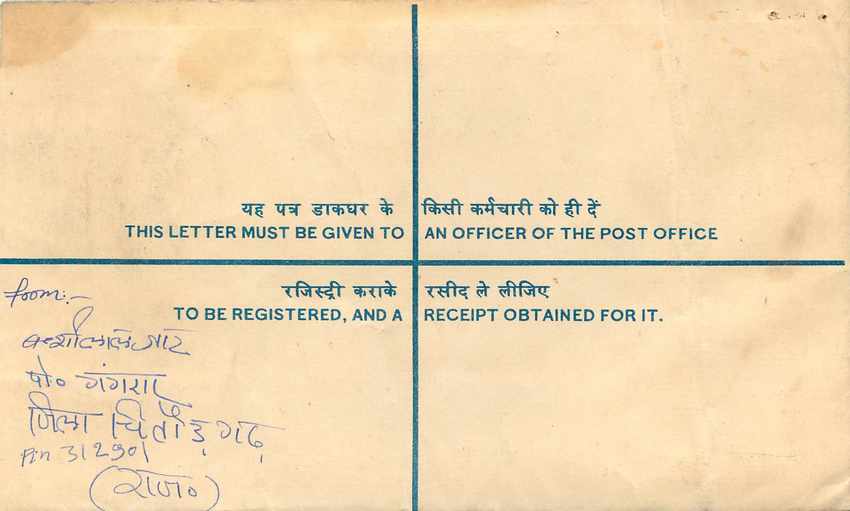 यह पत्र डाकघर के किसी कर्मचारी को ही दें
THIS LETTER MUST BE GIVEN TO AN OFFICER OF THE POST OFFICE
रजिस्ट्री कराके रसीद ले लीजिए
TO BE REGISTERED, AND A RECEIPT OBTAINED FOR IT.
from:-
जाट
पो० गंगरार
जिला चितौड़गढ़
Pin 312901
(राज०)